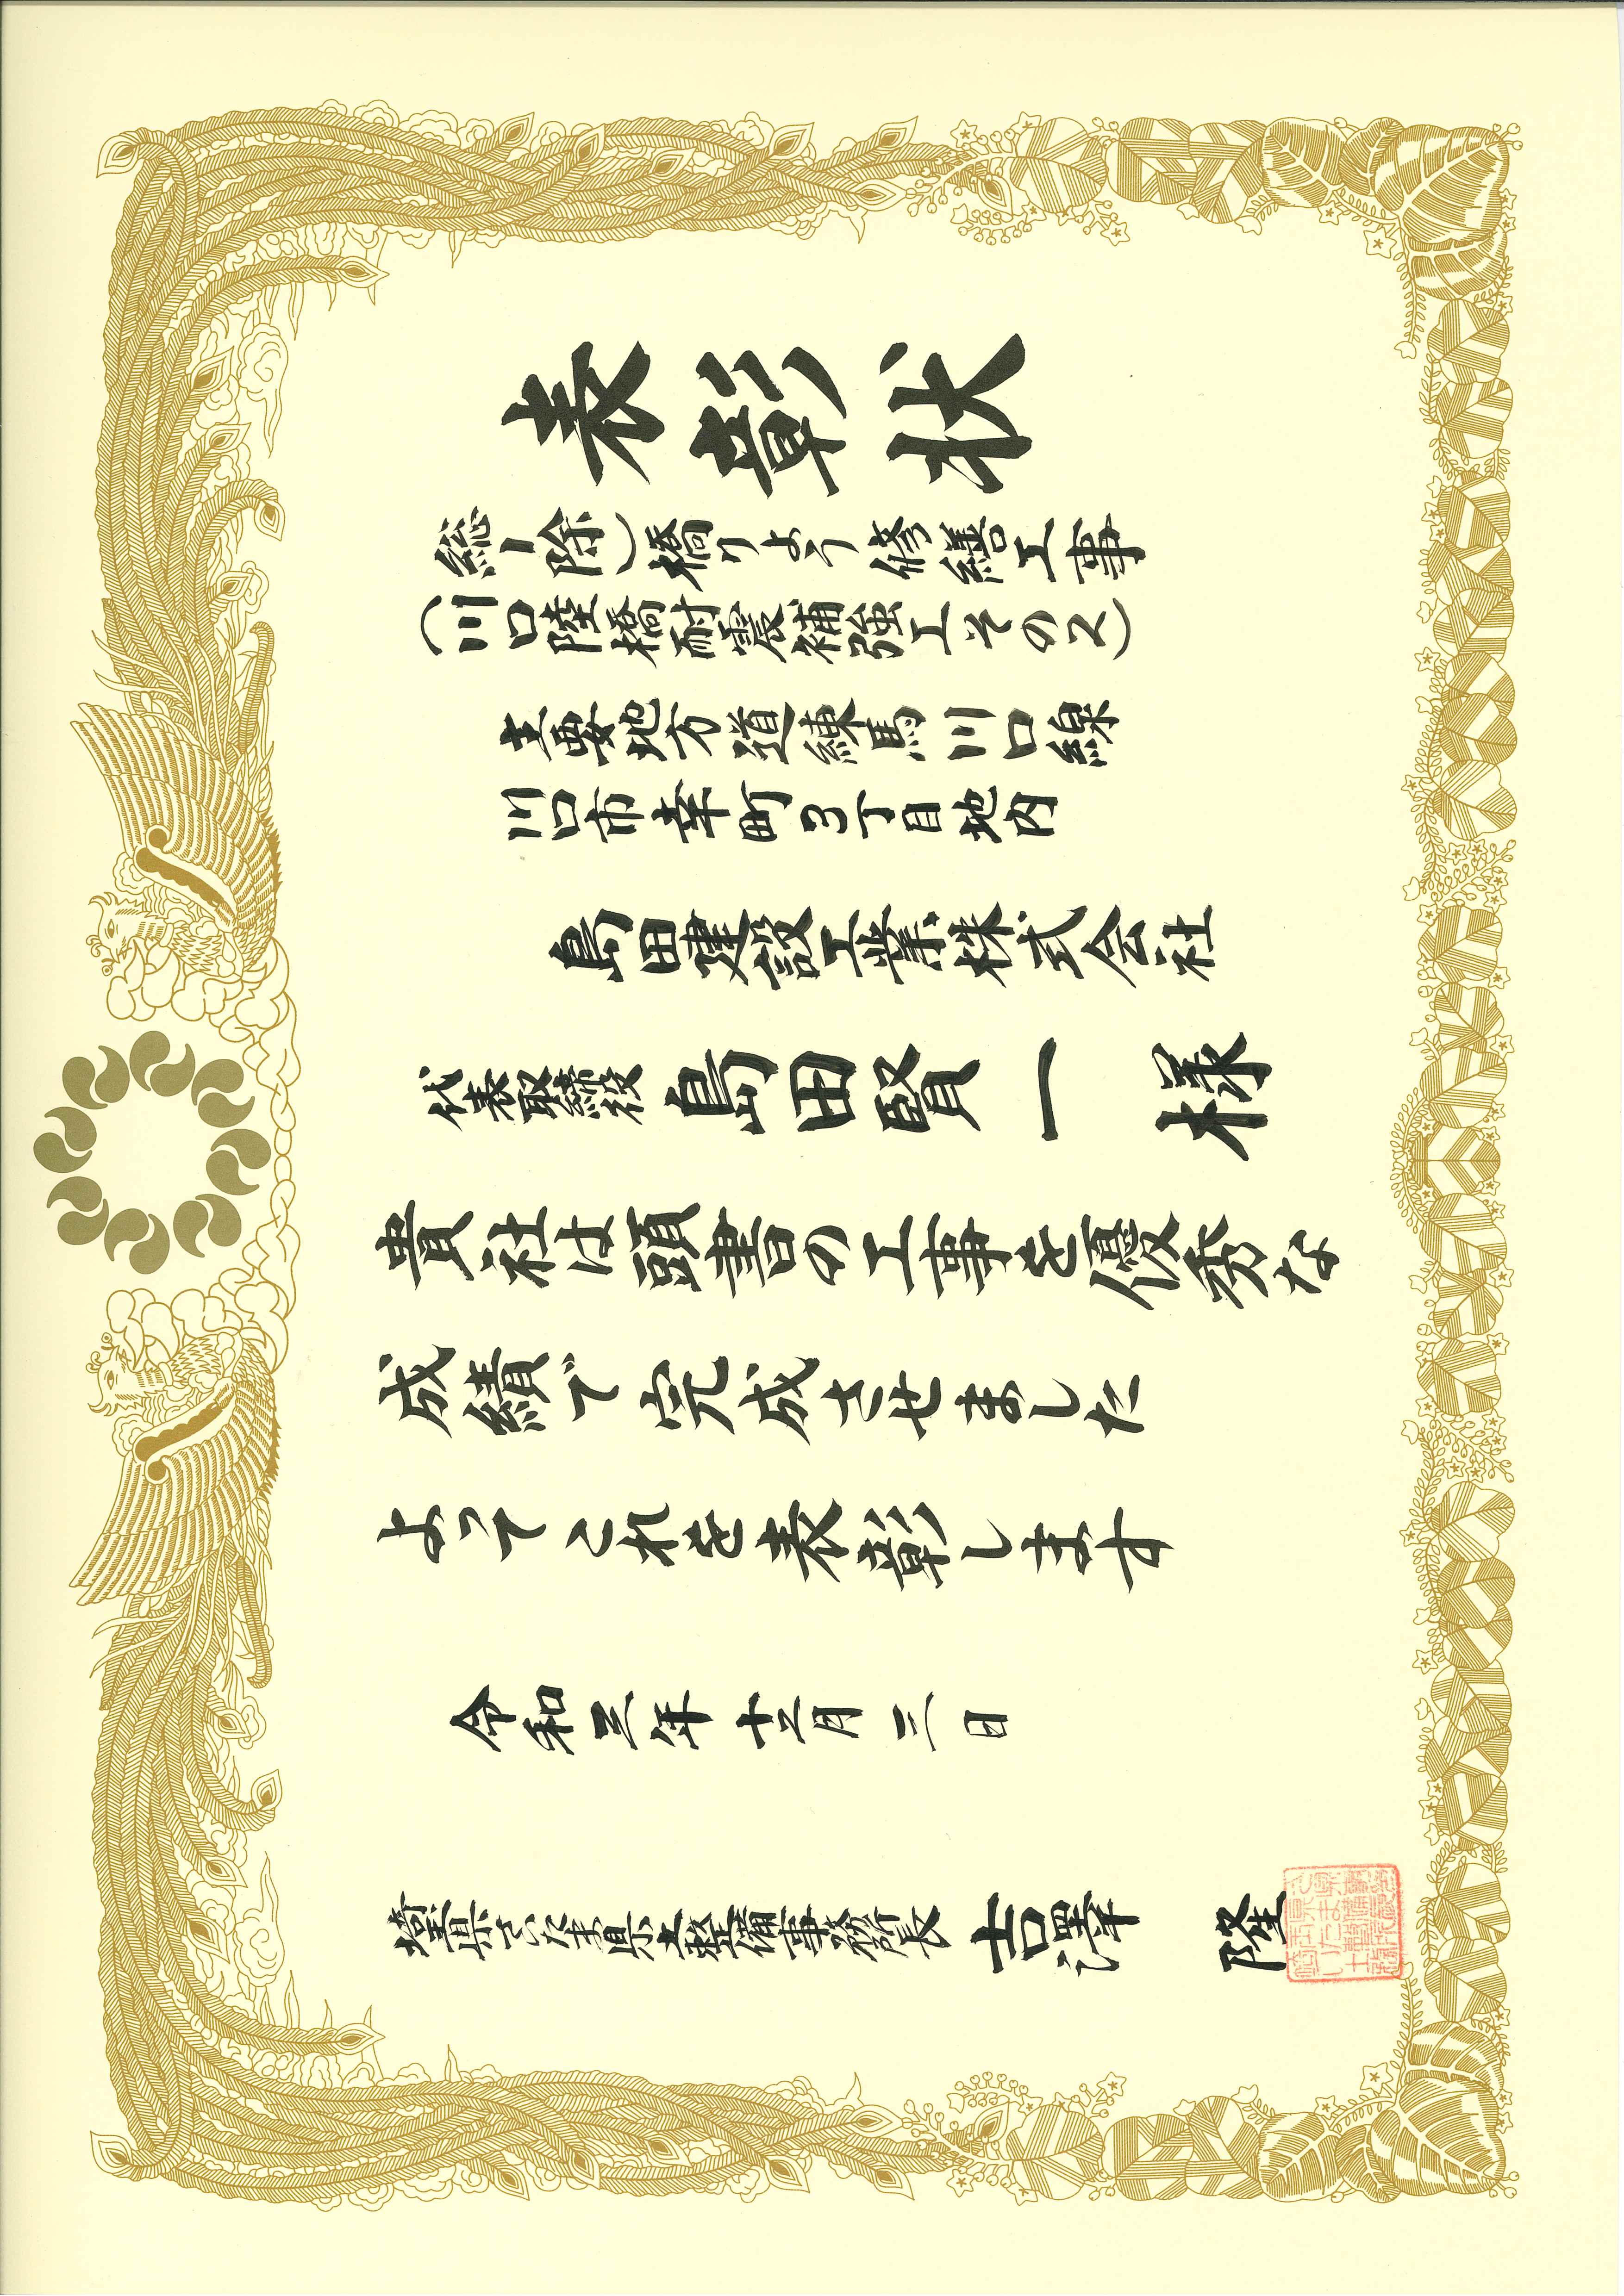 表彰状
総Ⅰ除)橋りょう修繕工事
(川口陸橋耐震補強工その2)
主要地方道練馬川口線
川口市幸町3丁目地内
島田建設工業株式会社
代表取締役 島田賢一 様
貴社は頭書の工事を優秀な
成績で完成させました
よってこれを表彰します
令和三年十二月三日
埼玉県さいたま県土整備事務所長 吉澤 隆